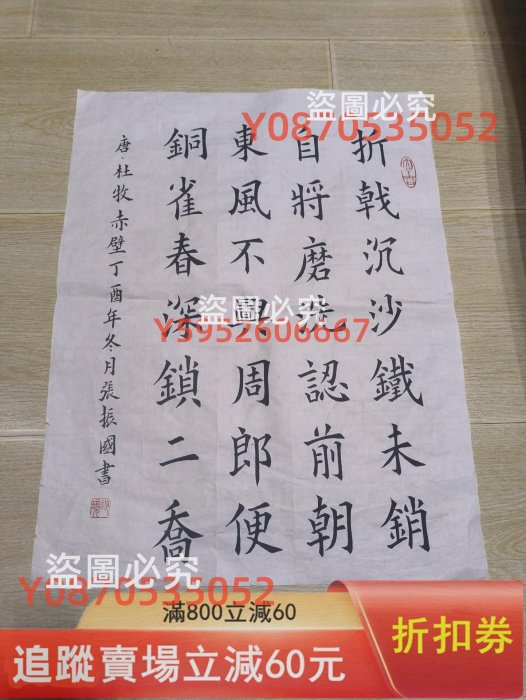 盜圖必究
Y0870535052
折戟沉沙鐵未銷
自將磨洗認前朝
東風不與周郎便
銅雀春深鎖二喬
唐·杜牧赤壁丁酉年冬月張振國書
盜圖必究
Y3952606667
盜圖必究
Y0870535052
滿800立減60
追蹤賣場立減60元
折扣券